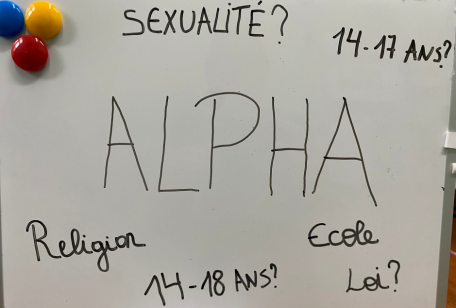 SEXUALITÉ?
14-17 ANS?
ALPHA
Religion
Ecole
14-18 ANS?
Loi?